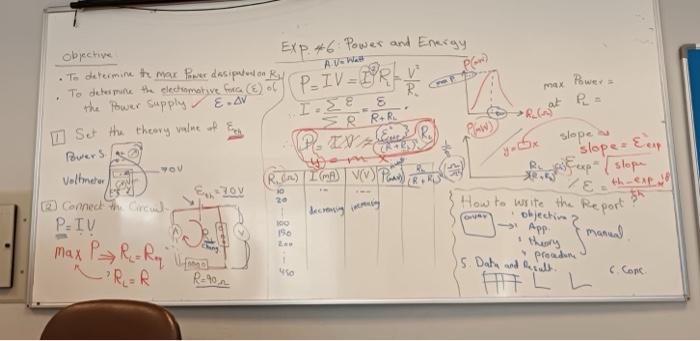 Exp. #6: Power and Energy
Objective:
• To determine the max Power dissipated on RL
• To determine the electromotive force (ε) of
the Power Supply ✓ ε = ΔV
1 Set the theory value of εth
Power S.
Voltmeter
70V
2 Connect the Circuit
P = IV
max P ⇒ RL = Req
RL = R
εth = 70V
A
V
R = 90 Ω
A.V = Watt
P = IV = I² RL = V²/RL
I = Σε/ΣR = ε/(R+RL)
P = IV =
y = m x
RL (Ω) I (mA) V (V) P (mW)
10
20
decreasing increasing
100
150
200
450
P (mW)
max P
RL (Ω)
max Power =
at RL =
P (mW)
y = x
slope
slope = ε² exp
εexp = √slope
th - exp
th
How to write the Report?
cover
objective
App.
theory
procedure
manual
5. Data and Result.
6. Conc.